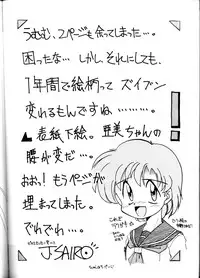 うむむ、2ページも余ってしまった…。
困ったな… しかし、それにしても、
1年間で絵柄って ズイブン
変れるもんですね………。
▲表紙下絵。亜美ちゃんの
腰が変だ…。
おおっ! もうページが
埋まってしまった。
でれでれ…。
J.SAIRO